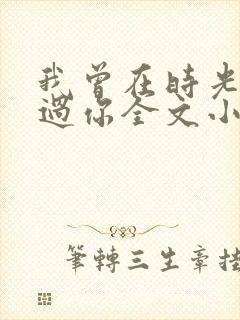 我曾在时光
过你全文小
筆轉三生章